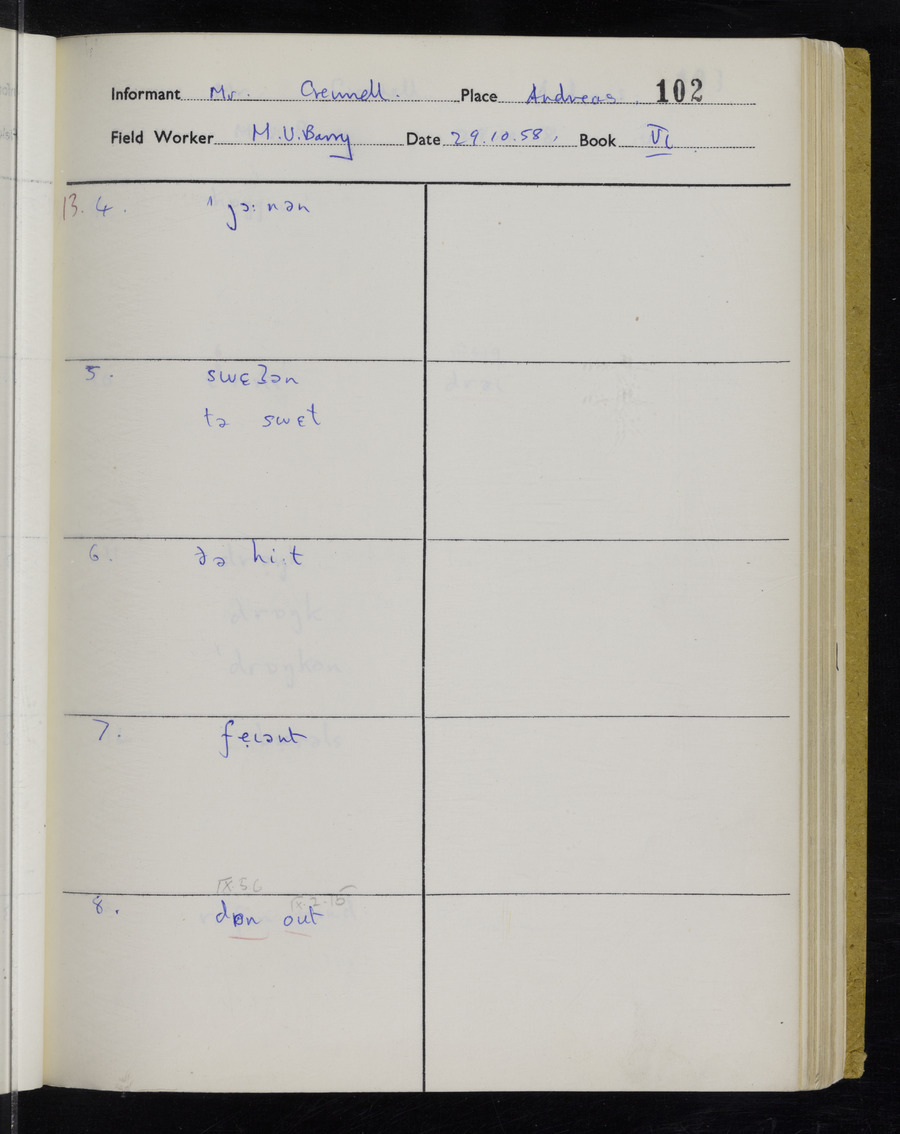 Informant Mr. Crennell. Place Andreas. 102
Field Worker M.V. Barry Date 29.10.58. Book VI
13. 4. ˈjɔːnən
5. swɛʔən
tə swɛt
6. ðə hiːt
7. feɪənt
IX.5 6
IX.2.15
8. dɒn out